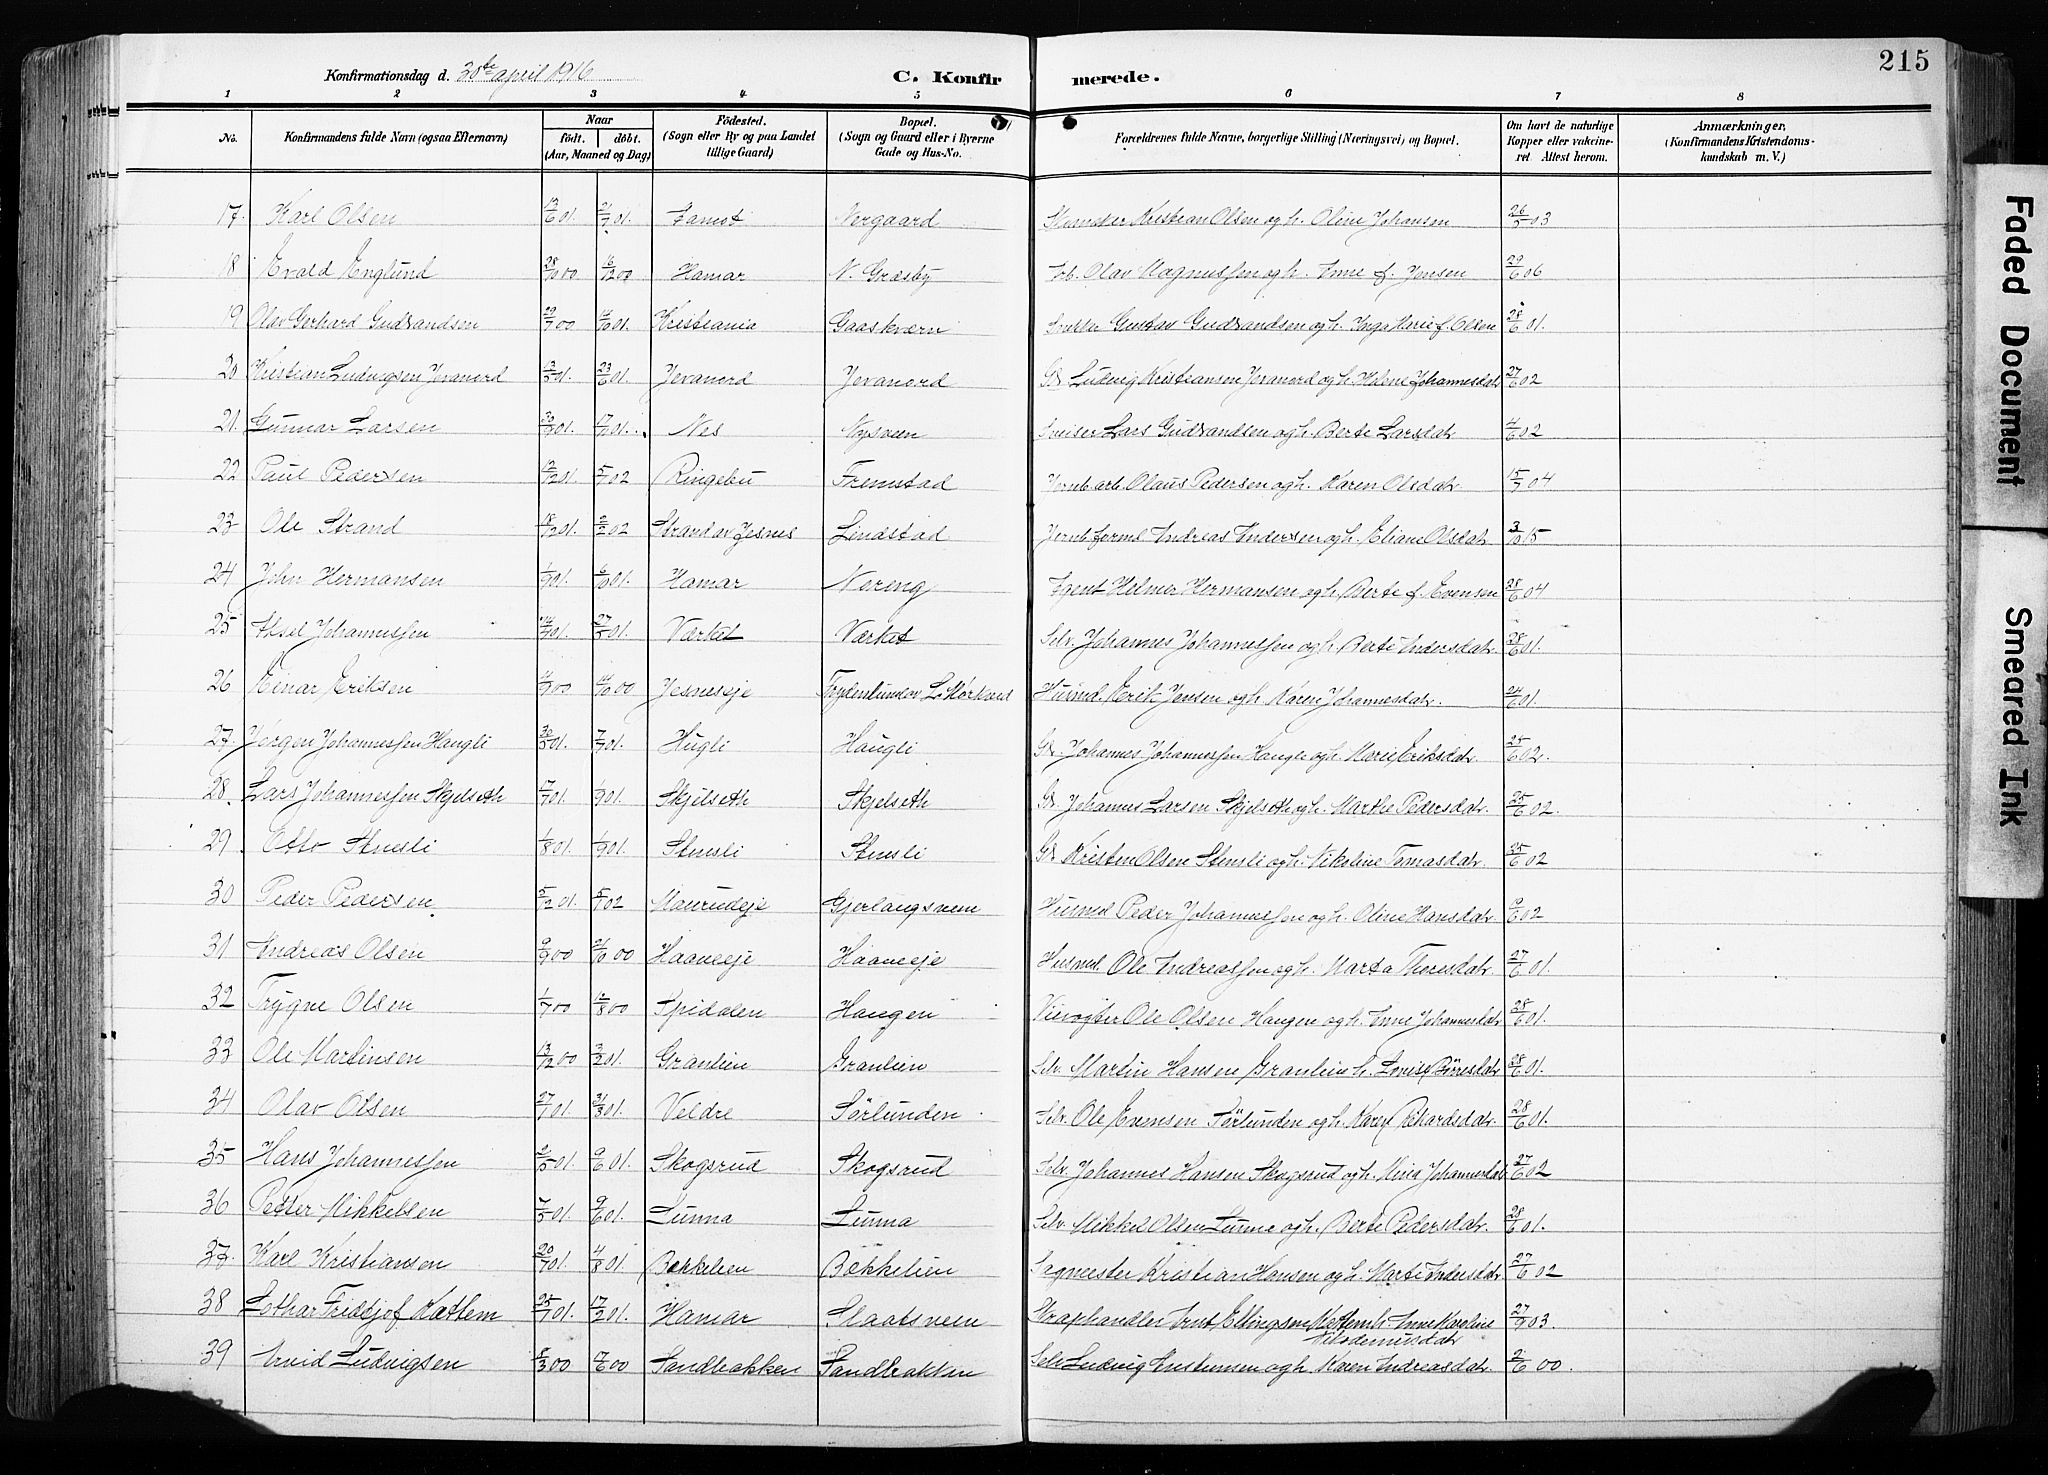 215
Konfirmationsdag d. 30te april 1916
C. Konfirmerede.
1 2 3 4 5 6 7 8
No. Konfirmandens fulde Navn (ogsaa Efternavn) Naar født. døbt. (Aar, Maaned og Dag) Fødested. (Sogn eller By og paa Landet tillige Gaard) Bopæl. (Sogn og Gaard eller i Byerne Gade og Hus-No. Forældrenes fulde Navne, borgerlige Stilling (Næringsvei) og Bopæl. Om havt de naturlige Kopper eller vakcineret. Attest herom. Anmærkninger. (Konfirmandens Kristendomskundskab m. V.)
17. Karl Olsen 13/6 01. 21/7 01. Nergaard Kristian Olsen og h. Oline Johansen 26/5 03
18 Evald Englund 28/10 00 16/12 00 Hamar N. Græsby Olav Magnussen og h. Anne f. Jensen 29/6 06
19 Olav Gerhard Gudrandsen 29/7 00 Kristiania Gaaskværn Gustav Gudrandsen og h. Inga Marie f. Olsen 28/6 01.
20 Kristian Ludvigsen Jevanord 13/5 01. 23/6 01. Jevanord Jevanord Gbr. Ludvig Kristiansen Jevanord og h. Helene Johannesdatr 27/6 02
21. Gunnar Larsen Nes Nysveen Sveiser Lars Gudrandsen og h. Berte Larsdatr 4/6 02
22 Paul Pedersen 12/12 01. 5/1 02 Ringebu Fremstad Jernb. arb. Olaus Pedersen og h. Karen Olsdatr. 15/7 04
23 Ole Strand 18/12 01. 2/2 02 Strand av Jesnes Lindstad Jernb. form. Andreas Andersen og h. Eliane Olsdatr 3/10 15
24 John Hermansen 1/9 01. 6/10 01. Hamar Nereng Agent Helmer Hermansen og h. Berte f. Evensen 28/6 04
25 Aksel Johannessen 27/5 01. Værket Værket Selv. Johannes Johannessen og h. Berte Andersdatr. 28/6 01.
26 Einar Eriksen Jesneseje Husmd. Erik Jensen og h. Karen Johannesdatr. 24/6 01.
27. Jørgen Johannessen Haugli 30/5 01. 7/7 01. Hugli Haugli Gbr. Johannes Johannessen Haugli og h. Marie Eriksdatr. 25/6 02.
28. Lars Johannessen Skjelseth 17/7 01. 1/9 01. Skjelseth Skjelseth Gbr. Johannes Larsen Skjelseth og h. Marthe Pedersdatr. 25/6 02.
29 Otto Stensli 1/8 01. 1/9 01. Stensli Stensli Gbr. Kristen Olsen Stensli og h. Nikoline Tomasdatr. 25/6 02
30 Peder Pedersen 5/12 01. 5/1 02 Maurudeje Gjerlaugsveen Husmd Peder Johannessen og h. Oline Hansdatr. 9/6 02
31 Andreas Olsen 9/9 00 21/10 00 Haaveeje Haaveeje Husmd. Ole Andreassen og h. Marta Thoresdatr. 27/6 01.
32 Trygve Olsen 1/7 00 12/8 00 Spidalen Haugen Ole Olsen Haugen og h. Anne Johannesdatr 28/6 01.
33 Ole Martinsen 13/12 00 3/2 01. Granlien Granlien Selv. Martin Hansen Granlien h. Lovise Börresdatr 28/6 01.
34 Olav Olsen 27/1 01. 31/3 01. Veldre Sörlunden Selv. Ole Evensen Sörlunden og h. Karen Rikardsdatr. 28/6 01.
35 Hans Johannessen 2/5 01. 9/6 01. Skogsrud Skogsrud Selv. Johannes Hansen Skogsrud og h. Maria Johannesdatr 27/6 02
36 Petter Mikkelsen 7/5 01. 9/6 01. Lunna Lunna Selv. Mikkel Olsen Lunna og h. Berte Pedersdatr. 28/6 01.
37. Karl Kristiansen 20/7 01. 4/8 01. Bøkkelien Bökkelien Sagmester Kristian Hansen og h. Marte Andersdatr 27/6 02
38 Lothar Fridtjof Kattem 25/1 01. 17/2 01. Hamar Slaatsveen Skraphandler Arnt Ellingsen Kattem h. Anne Karoline Nikodemusdatr 27/9 03.
39 Arvid Ludvigsen Sandbakken Sandbakken Selv. Ludvig Kristiansen og h. Karen Andreasdatr. 2/6 00.
Faded Document
Smeared Ink